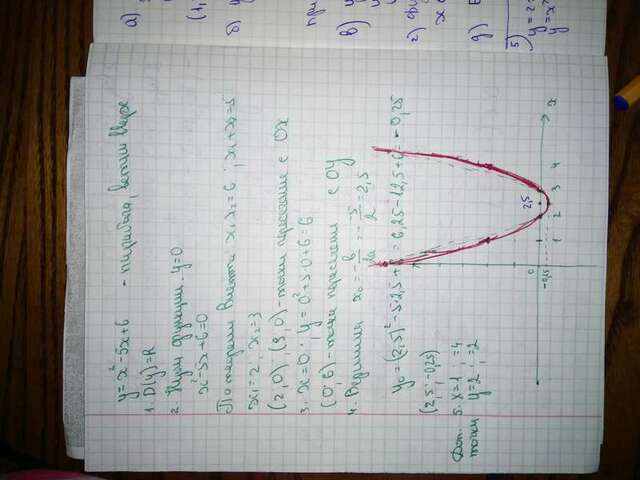 y = x² - 5x + 6 - парабола, ветви вверх
1. D(y) = R
2. Нули функции. y = 0
x² - 5x + 6 = 0
По теореме Виета: x₁ x₂ = 6 ; x₁ + x₂ = 5
x₁ = 2 ; x₂ = 3
(2, 0) ; (3, 0) - точки пересечение с OX
3. x = 0 ; y = 0² + 5·0 + 6 = 6
(0; 6) - точка пересечения с OY
4. Вершина x₀ = -b/2a = -5/2 = 2,5
y₀ = (2,5)² - 5·2,5 + 6 = 6,25 - 12,5 + 6 = -0,25
(2,5 ; -0,25)
Доп. 5. x = 1 ; = 4
точки y = 2 ; = 2
0
2,5
-0,25
1 2 3 4 x
а)
(1,
б) y
при
в) y
y
y
г) фу
x
д)
5)
y = 2
y = x²